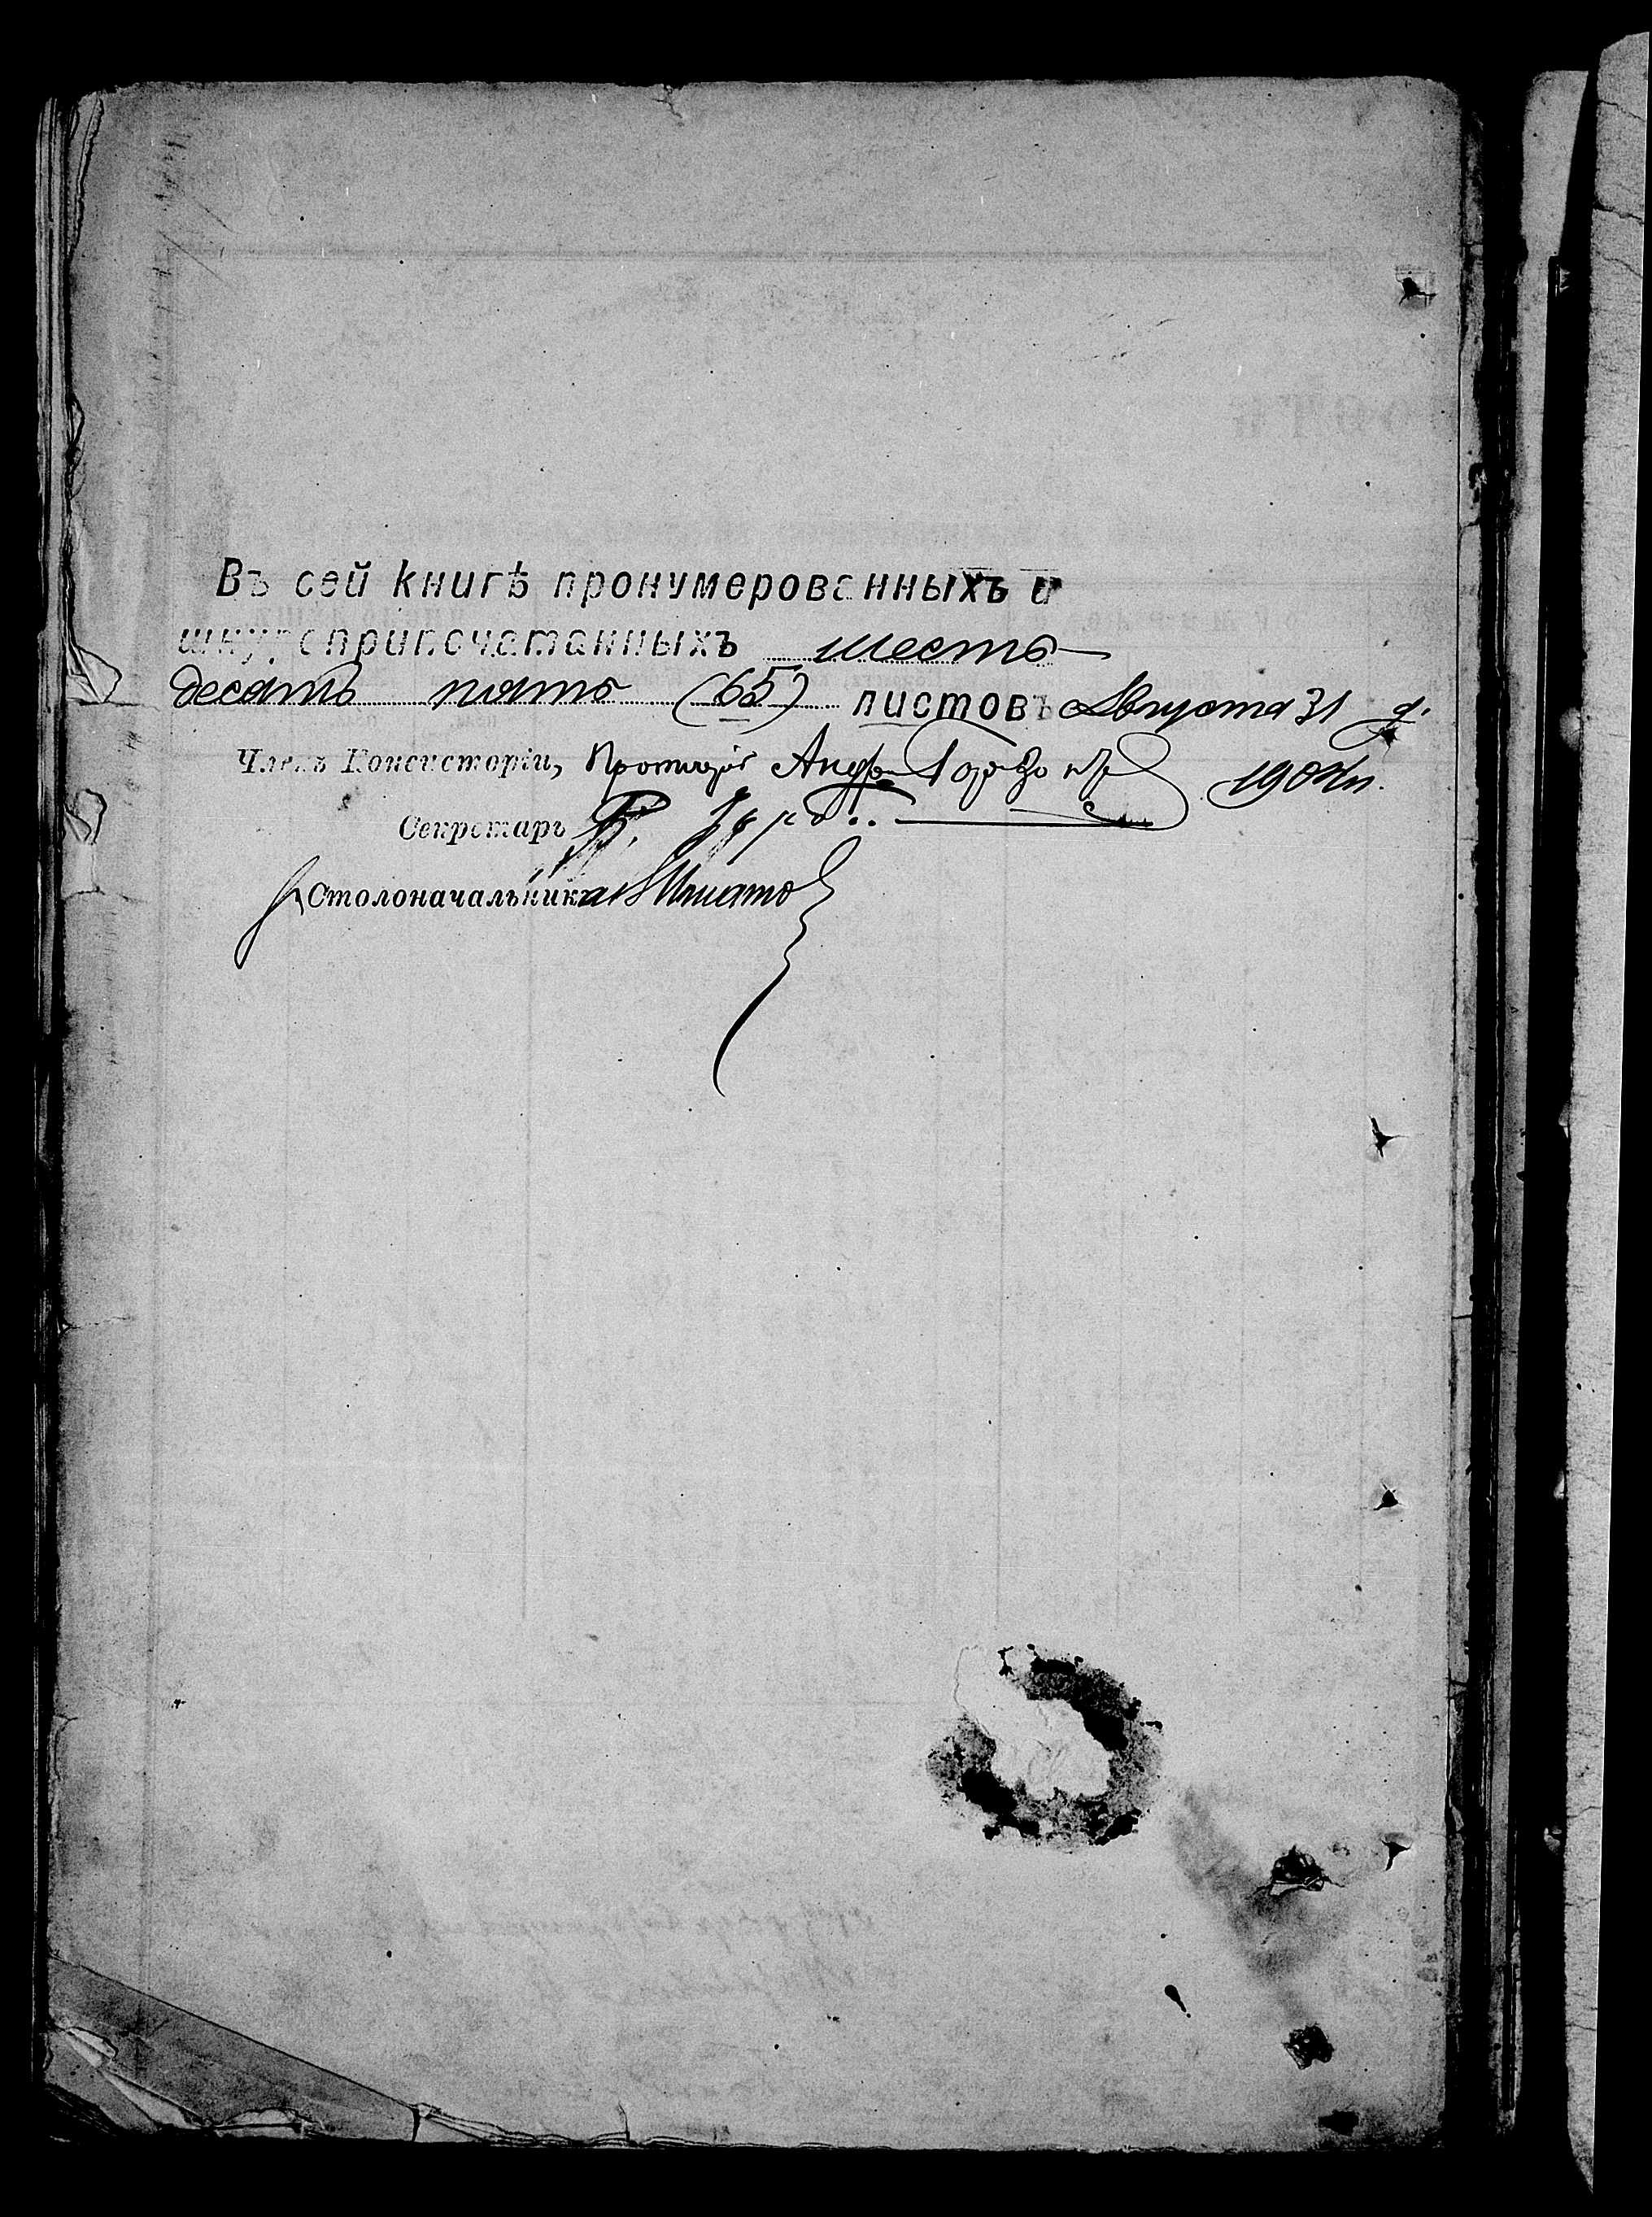 Въ сей книгѣ пронумерованныхъ и
шнуроприпечатанныхъ шесть-
десять пять (65) листовъ Августа 31 д.
Членъ Консисторіи, Протоіерей 1904 г.
Секретарь
Столоначальника